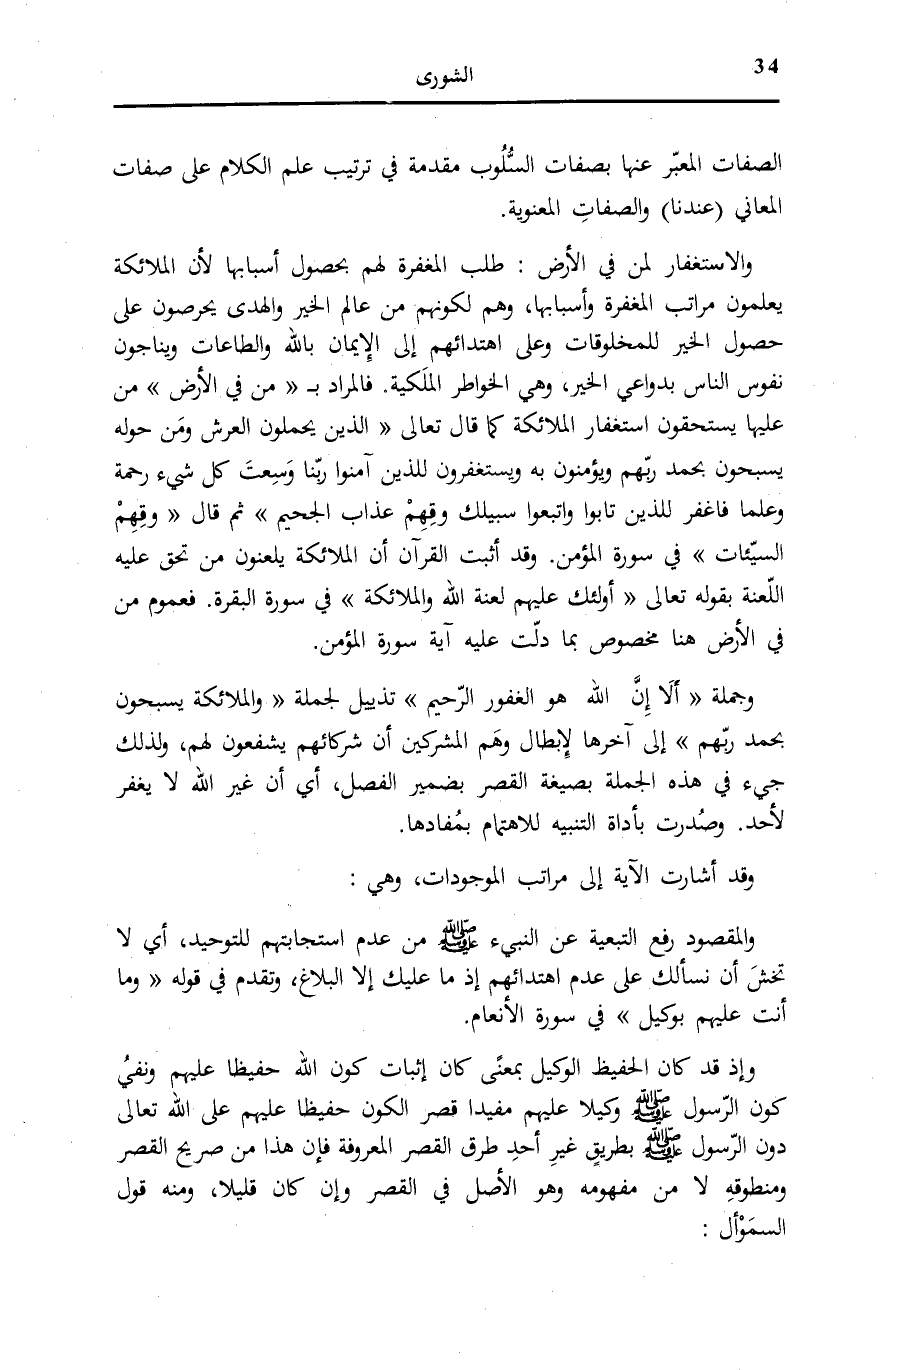 34
الشورى
الصفات المعبّر عنها بصفات السُّلُوب مقدمة في ترتيب علم الكلام على صفات
المعاني (عندنا) والصفاتِ المعنوية.
والاستغفار لمن في الأرض : طلب المغفرة لهم بحصول أسبابها لأن الملائكة
يعلمون مراتب المغفرة وأسبابها، وهم لكونهم من عالم الخير والهدى يحرصون على
حصول الخير للمخلوقات وعلى اهتدائهم إلى الإيمان بالله والطاعات ويناجون
نفوس الناس بدواعي الخير، وهي الخواطر الملَكية. فالمراد بـ « من في الأرض » من
عليها يستحقون استغفار الملائكة كما قال تعالى « الذين يحملون العرش ومَن حوله
يسبحون بحمد ربّهم ويؤمنون به ويستغفرون للذين آمنوا ربّنا وَسِعتَ كل شيء رحمة
وعلما فاغفر للذين تابوا واتبعوا سبيلك وقِهِمْ عذاب الجحيم » ثم قال « وقِهِمْ
السيّئات » في سورة المؤمن. وقد أثبت القرآن أن الملائكة يلعنون من تحق عليه
اللّعنة بقوله تعالى « أولئك عليهم لعنة الله والملائكة » في سورة البقرة. فعموم من
في الأرض هنا مخصوص بما دلّت عليه آية سورة المؤمن.
وجملة « ألَا إِنَّ الله هو الغفور الرّحيم » تذييل لجملة « والملائكة يسبحون
بحمد ربّهم » إلى آخرها لإبطال وهَم المشركين أن شركائهم يشفعون لهم، ولذلك
جيء في هذه الجملة بصيغة القصر بضمير الفصل، أي أن غير الله لا يغفر
لأحد. وصُدرت بأداة التنبيه للاهتمام بمُفادها.
وقد أشارت الآية إلى مراتب الموجودات، وهي :
والمقصود رفع التبعية عن النبيء ﷺ من عدم استجابتهم للتوحيد، أي لا
تخشَ أن نسألك على عدم اهتدائهم إذ ما عليك إلا البلاغ، وتقدم في قوله « وما
أنت عليهم بوكيل » في سورة الأنعام.
وإذ قد كان الحفيظ الوكيل بمعنًى كان إثبات كون الله حفيظا عليهم ونفيُ
كون الرّسول ﷺ وكيلا عليهم مفيدا قصر الكون حفيظا عليهم على الله تعالى
دون الرّسول ﷺ بطريقٍ غيرِ أحدِ طرق القصر المعروفة فإن هذا من صريح القصر
ومنطوقهِ لا من مفهومه وهو الأصل في القصر وإن كان قليلا، ومنه قول
السمَوْأل :